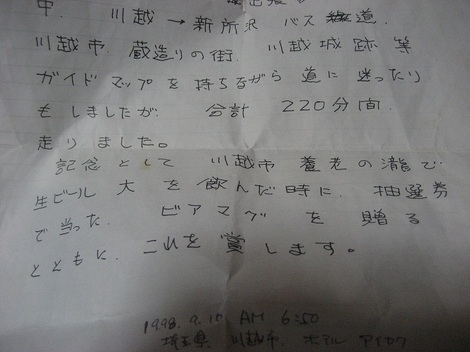 中. 川越 → 新所沢 バス 道.
川越市. 蔵造りの街. 川越城跡 等
ガイドマップを持ちながら 道に迷ったり
もしましたが. 合計 220分間.
走りました。
記念として 川越市 養老の瀧で
生ビール 大 を飲んだ時に. 抽選券
で当った. ビアマグ を 贈る
とともに. これを賞します。
1998. 9. 10 AM 6:50
埼玉県 川越市. ホテル